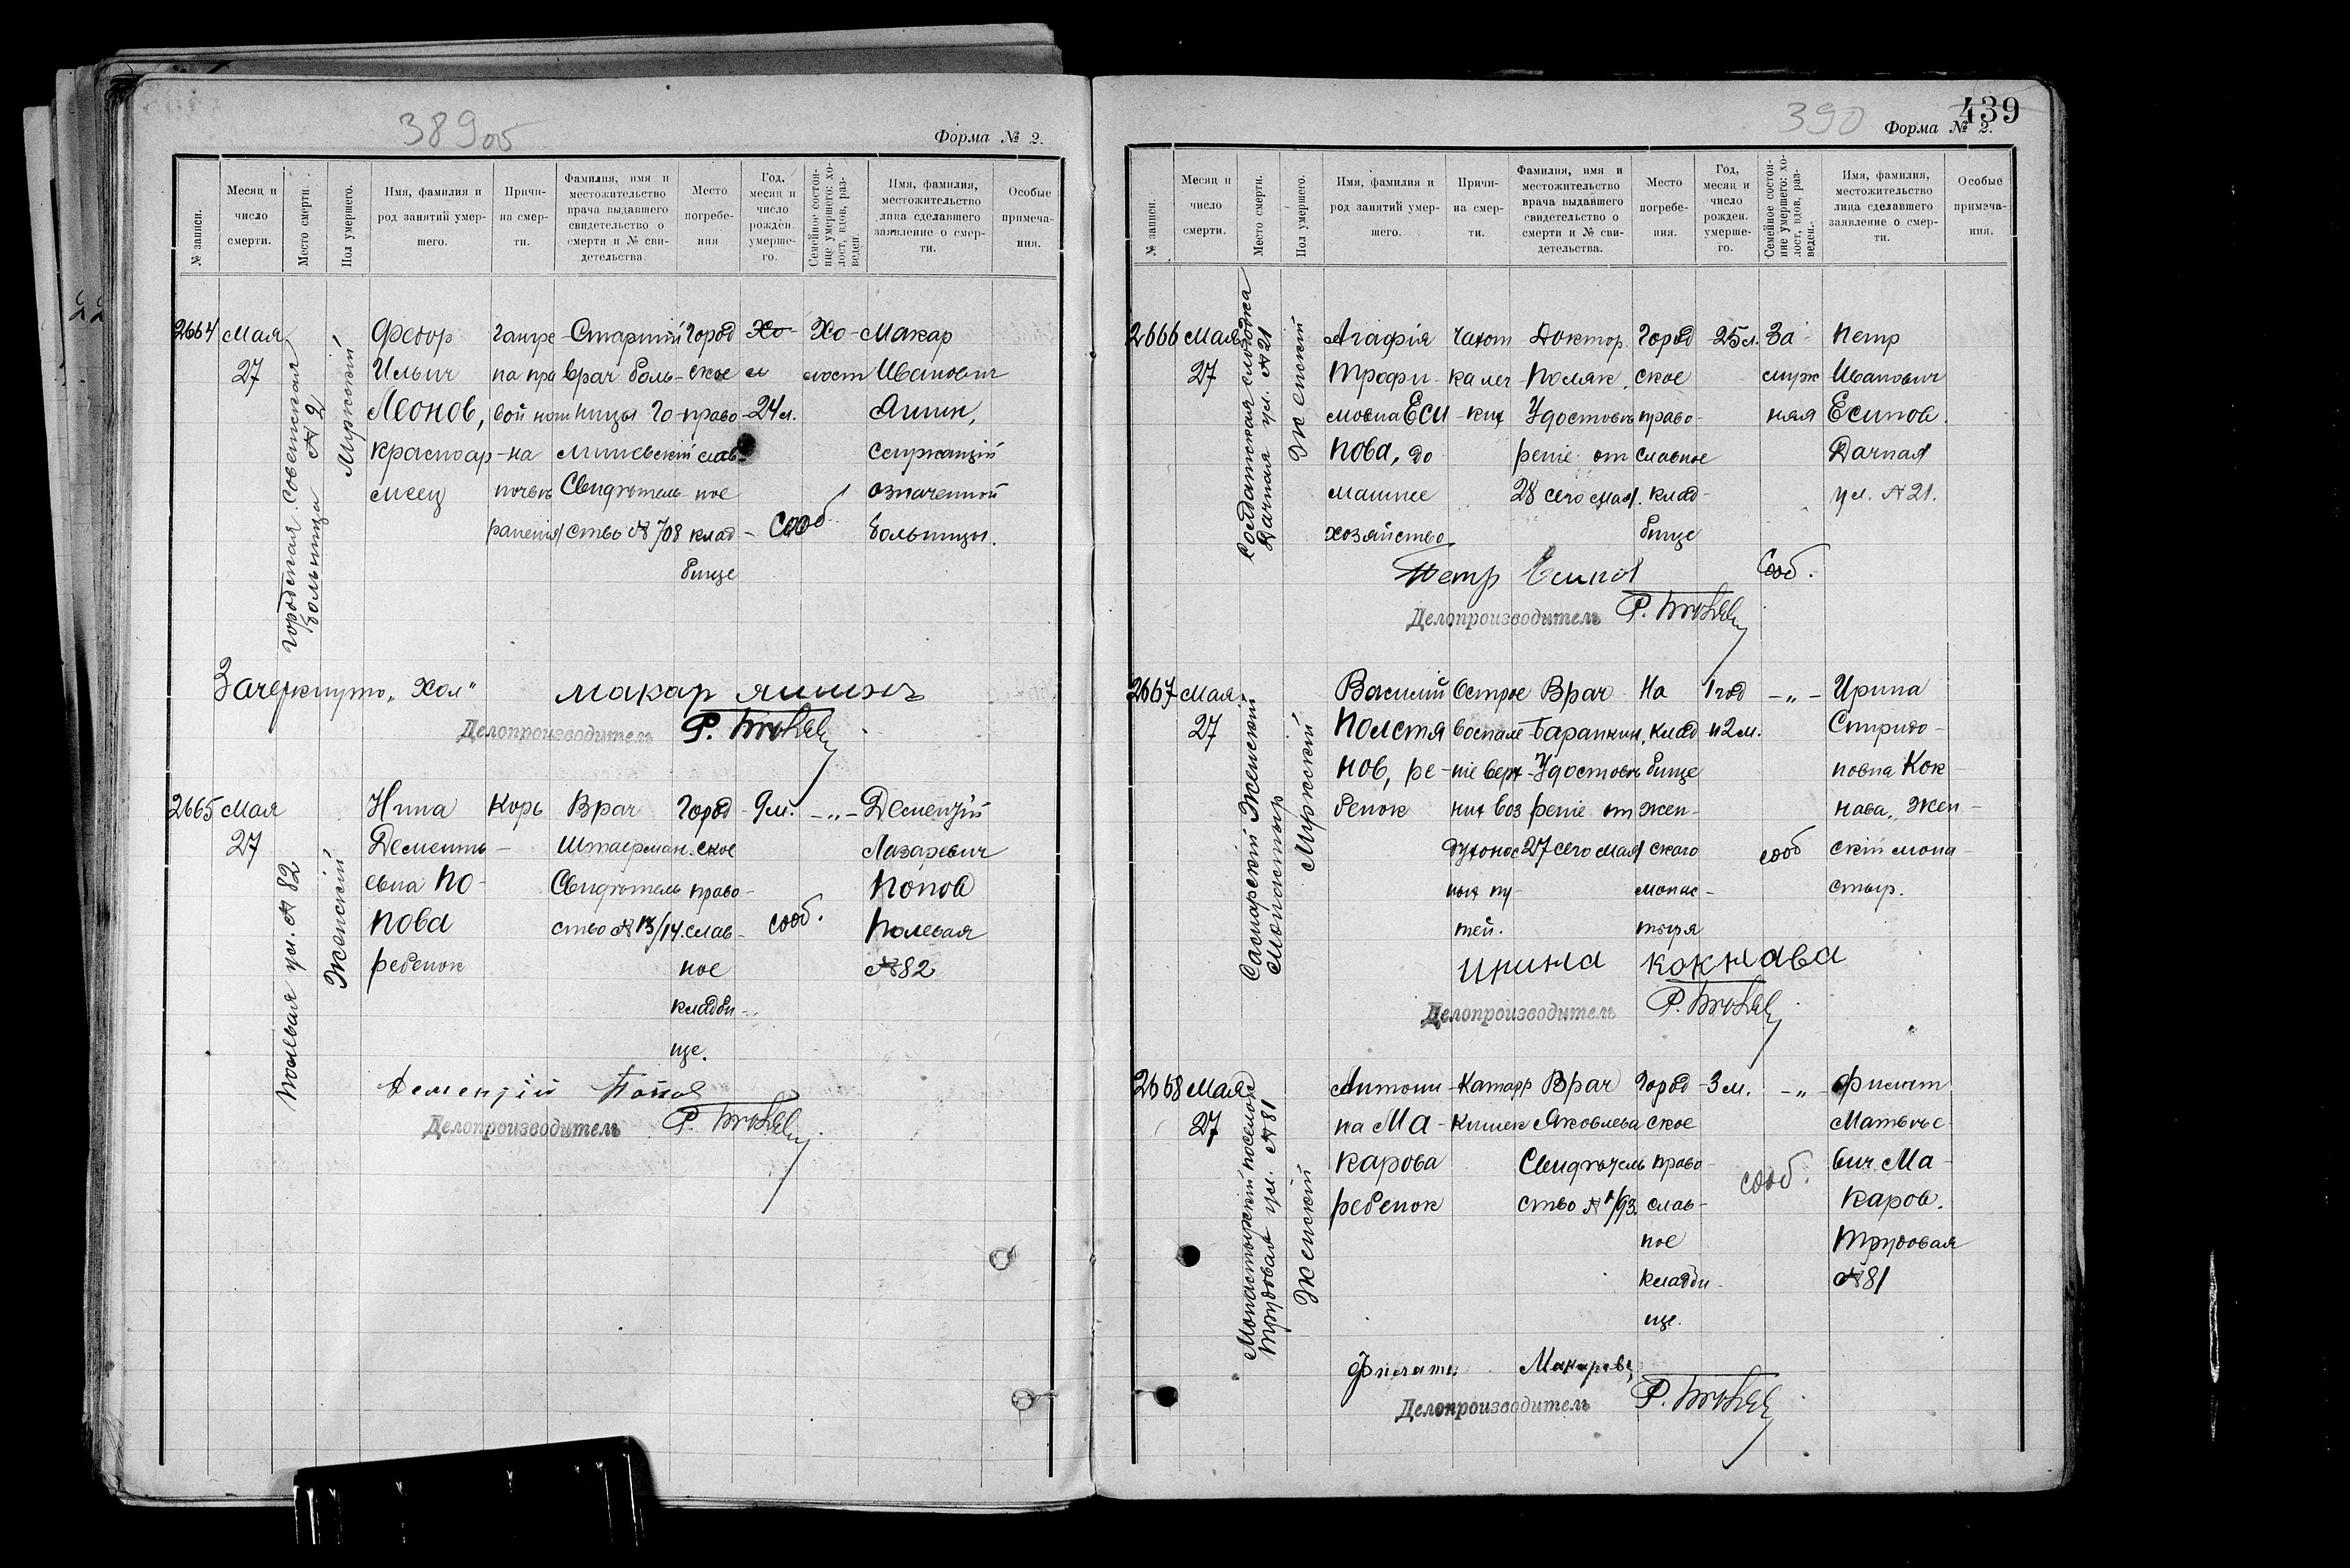 389об
Форма № 2.
№ записи.
Месяц и число смерти.
Место смерти.
Пол умершего.
Имя, фамилия и род занятий умершего.
Причина смерти.
Фамилия, имя и местожительство врача выдавшего свидетельство о смерти и № свидетельства.
Место погребения
Год, месяц и число рожден. умершего.
Семейное состояние умершего: холост, вдов, разведен.
Имя, фамилия, местожительство лица сделавшего заявление о смерти.
Особые примечания.
2664
Мая
27
Городская Советская
Больница № 2
Мужской
Федор
Ильич
Леонов,
красноар-
меец
Гангре-
на пра
вой
на
почвъ
раненія
Старшій
врач боль-
ницы Го-
Свидѣтель-
ство № 708
Город
ское
право-
слав-
ное
клад-
бище
Хо-
л
24 л.
Хо-
лост
Макар
Иванович
Яшин,
Служащій
означенной
больницы.
Сооб.
Зачеркнуто „Хол“
макар яшинъ
Делопроизводитель
2665
Мая
27
Полевая ул. № 82
Женский
Нина
Дементь-
евна По-
пова
ребенок
Корь
Врач
Штаерман.
Свидѣтель
ство № 13/14.
Город-
ское
право-
слав-
ное
кладби-
ще.
9 м.
-„-
Дементій
Лазаревич
Попов
Полевая
№ 82
сооб.
Дементій Попов
Делопроизводитель
390
439
Форма № 2.
№ записи.
Месяц и число смерти.
Место смерти.
Пол умершего.
Имя, фамилия и род занятий умершего.
Причина смерти.
Фамилия, имя и местожительство врача выдавшего свидетельство о смерти и № свидетельства.
Место погребения.
Год, месяц и число рожден. умершего.
Семейное состояние умершего: холост, вдов, разведен.
Имя, фамилия, местожительство лица сделавшего заявление о смерти.
Особые примечания.
2666
Мая
27
Солдатская слободка
Дачная ул. № 21
Женский
Агафія
Трофи-
мовна Еси-
пова, до
машнее
хозяйство
Чахот
ка лег-
ких
Доктор
Поляк.
Удостовѣ
реніе от
28 сего мая.
Город
ское
право-
славное
клад-
бище
25 л.
За-
муж
няя
Петр
Иванович
Есипов.
Дачная
ул. № 21.
Сооб.
Петр Есипов
Делопроизводитель
2667
Мая
27
Самарский Женский
Монастыр
Мужский
Василий
Полстя
нов, ре-
бенок
Острое
воспале-
ніе верх-
них воз
духонос
ных пу-
тей.
Врач
Баранкин.
Удостовѣ
реніе от
27 сего мая
На
клад
бище
жен-
скаго
монас-
тыря
1 год
и 2 м.
-„-
Ирина
Спиридо-
новна Кок-
нава, Жен-
скій мона-
стыр.
сооб
ирина кокнава
Делопроизводитель
2668
Мая
27
Монастырскій поселок
Трудовая ул. № 81
Женский
Антони-
на Ма-
карова
ребенок
Катарр
кишек
Врач
Яковлева
Свидѣтель
ство № 1/93.
Город-
ское
право-
слав-
ное
кладби-
ще.
3 м.
-„-
Филат
Матвѣе-
вич Ма-
каров.
Трудовая
№ 81
сооб.
Филатъ Макаровъ
Делопроизводитель